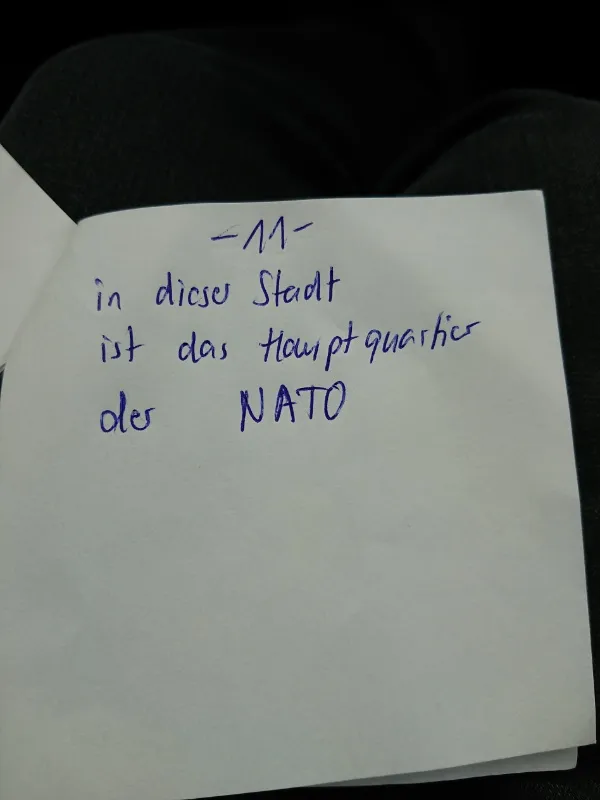 -11-
in dieser Stadt
ist das Hauptquartier
der NATO